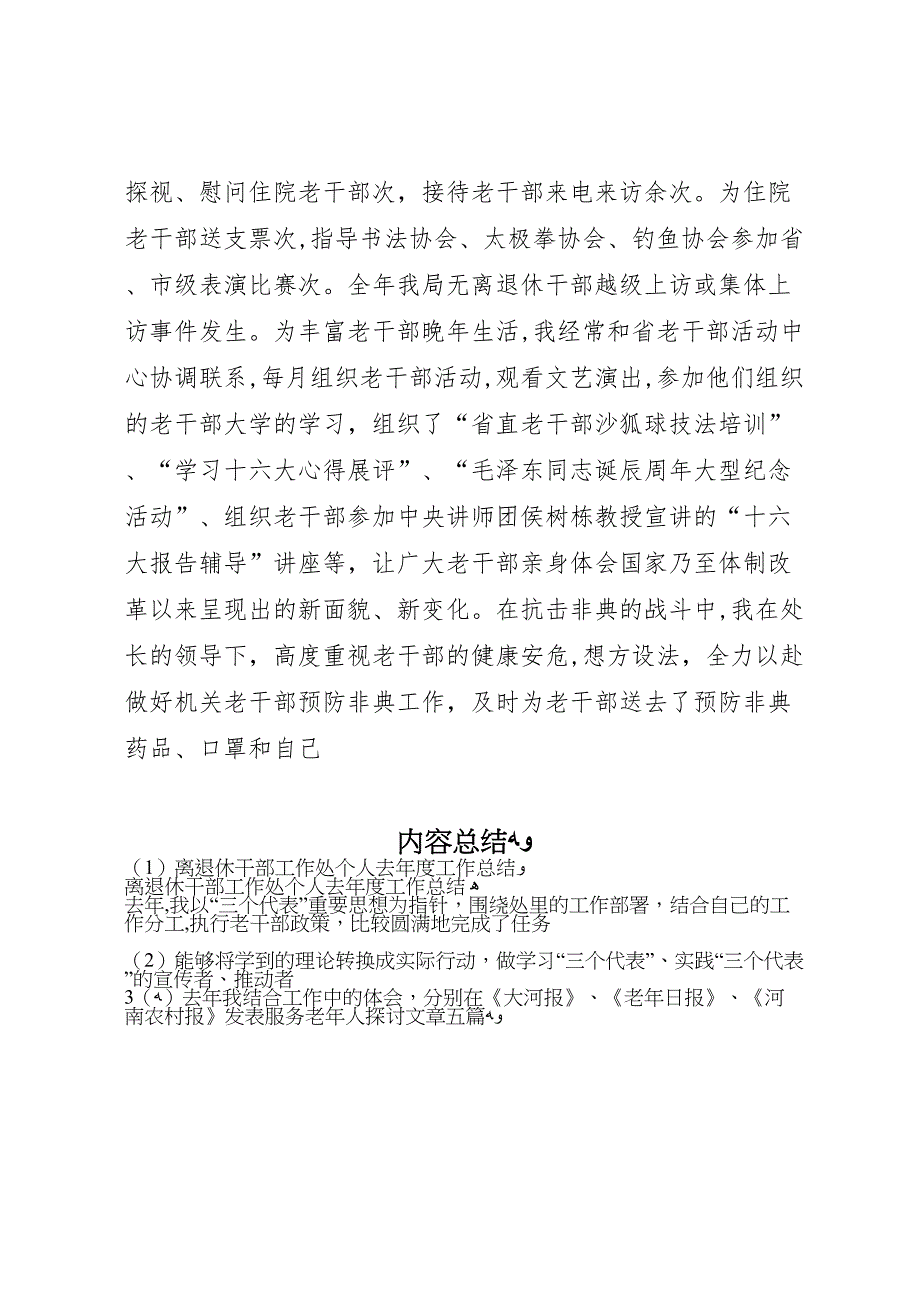 探视、慰问住院老干部次，接待老干部来电来访余次。为住院
老干部送支票次,指导书法协会、太极拳协会、钓鱼协会参加省
、市级表演比赛次。全年我局无离退休干部越级上访或集体上
访事件发生。为丰富老干部晚年生活,我经常和省老干部活动中
心协调联系,每月组织老干部活动,观看文艺演出,参加他们组织
的老干部大学的学习，组织了“省直老干部沙狐球技法培训”
、“学习十六大心得展评”、“毛泽东同志诞辰周年大型纪念
活动”、组织老干部参加中央讲师团侯树栋教授宣讲的“十六
大报告辅导”讲座等，让广大老干部亲身体会国家乃至体制改
革以来呈现出的新面貌、新变化。在抗击非典的战斗中,我在处
长的领导下，高度重视老干部的健康安危,想方设法，全力以赴
做好机关老干部预防非典工作，及时为老干部送去了预防非典
药品、口罩和自己
内容总结
（1）离退休干部工作处个人去年度工作总结
离退休干部工作处个人去年度工作总结
去年,我以“三个代表”重要思想为指针，围绕处里的工作部署，结合自己的工
作分工,执行老干部政策，比较圆满地完成了任务
（2）能够将学到的理论转换成实际行动，做学习“三个代表”、实践“三个代表
”的宣传者、推动者
3（）去年我结合工作中的体会，分别在《大河报》、《老年日报》、《河
南农村报》发表服务老年人探讨文章五篇